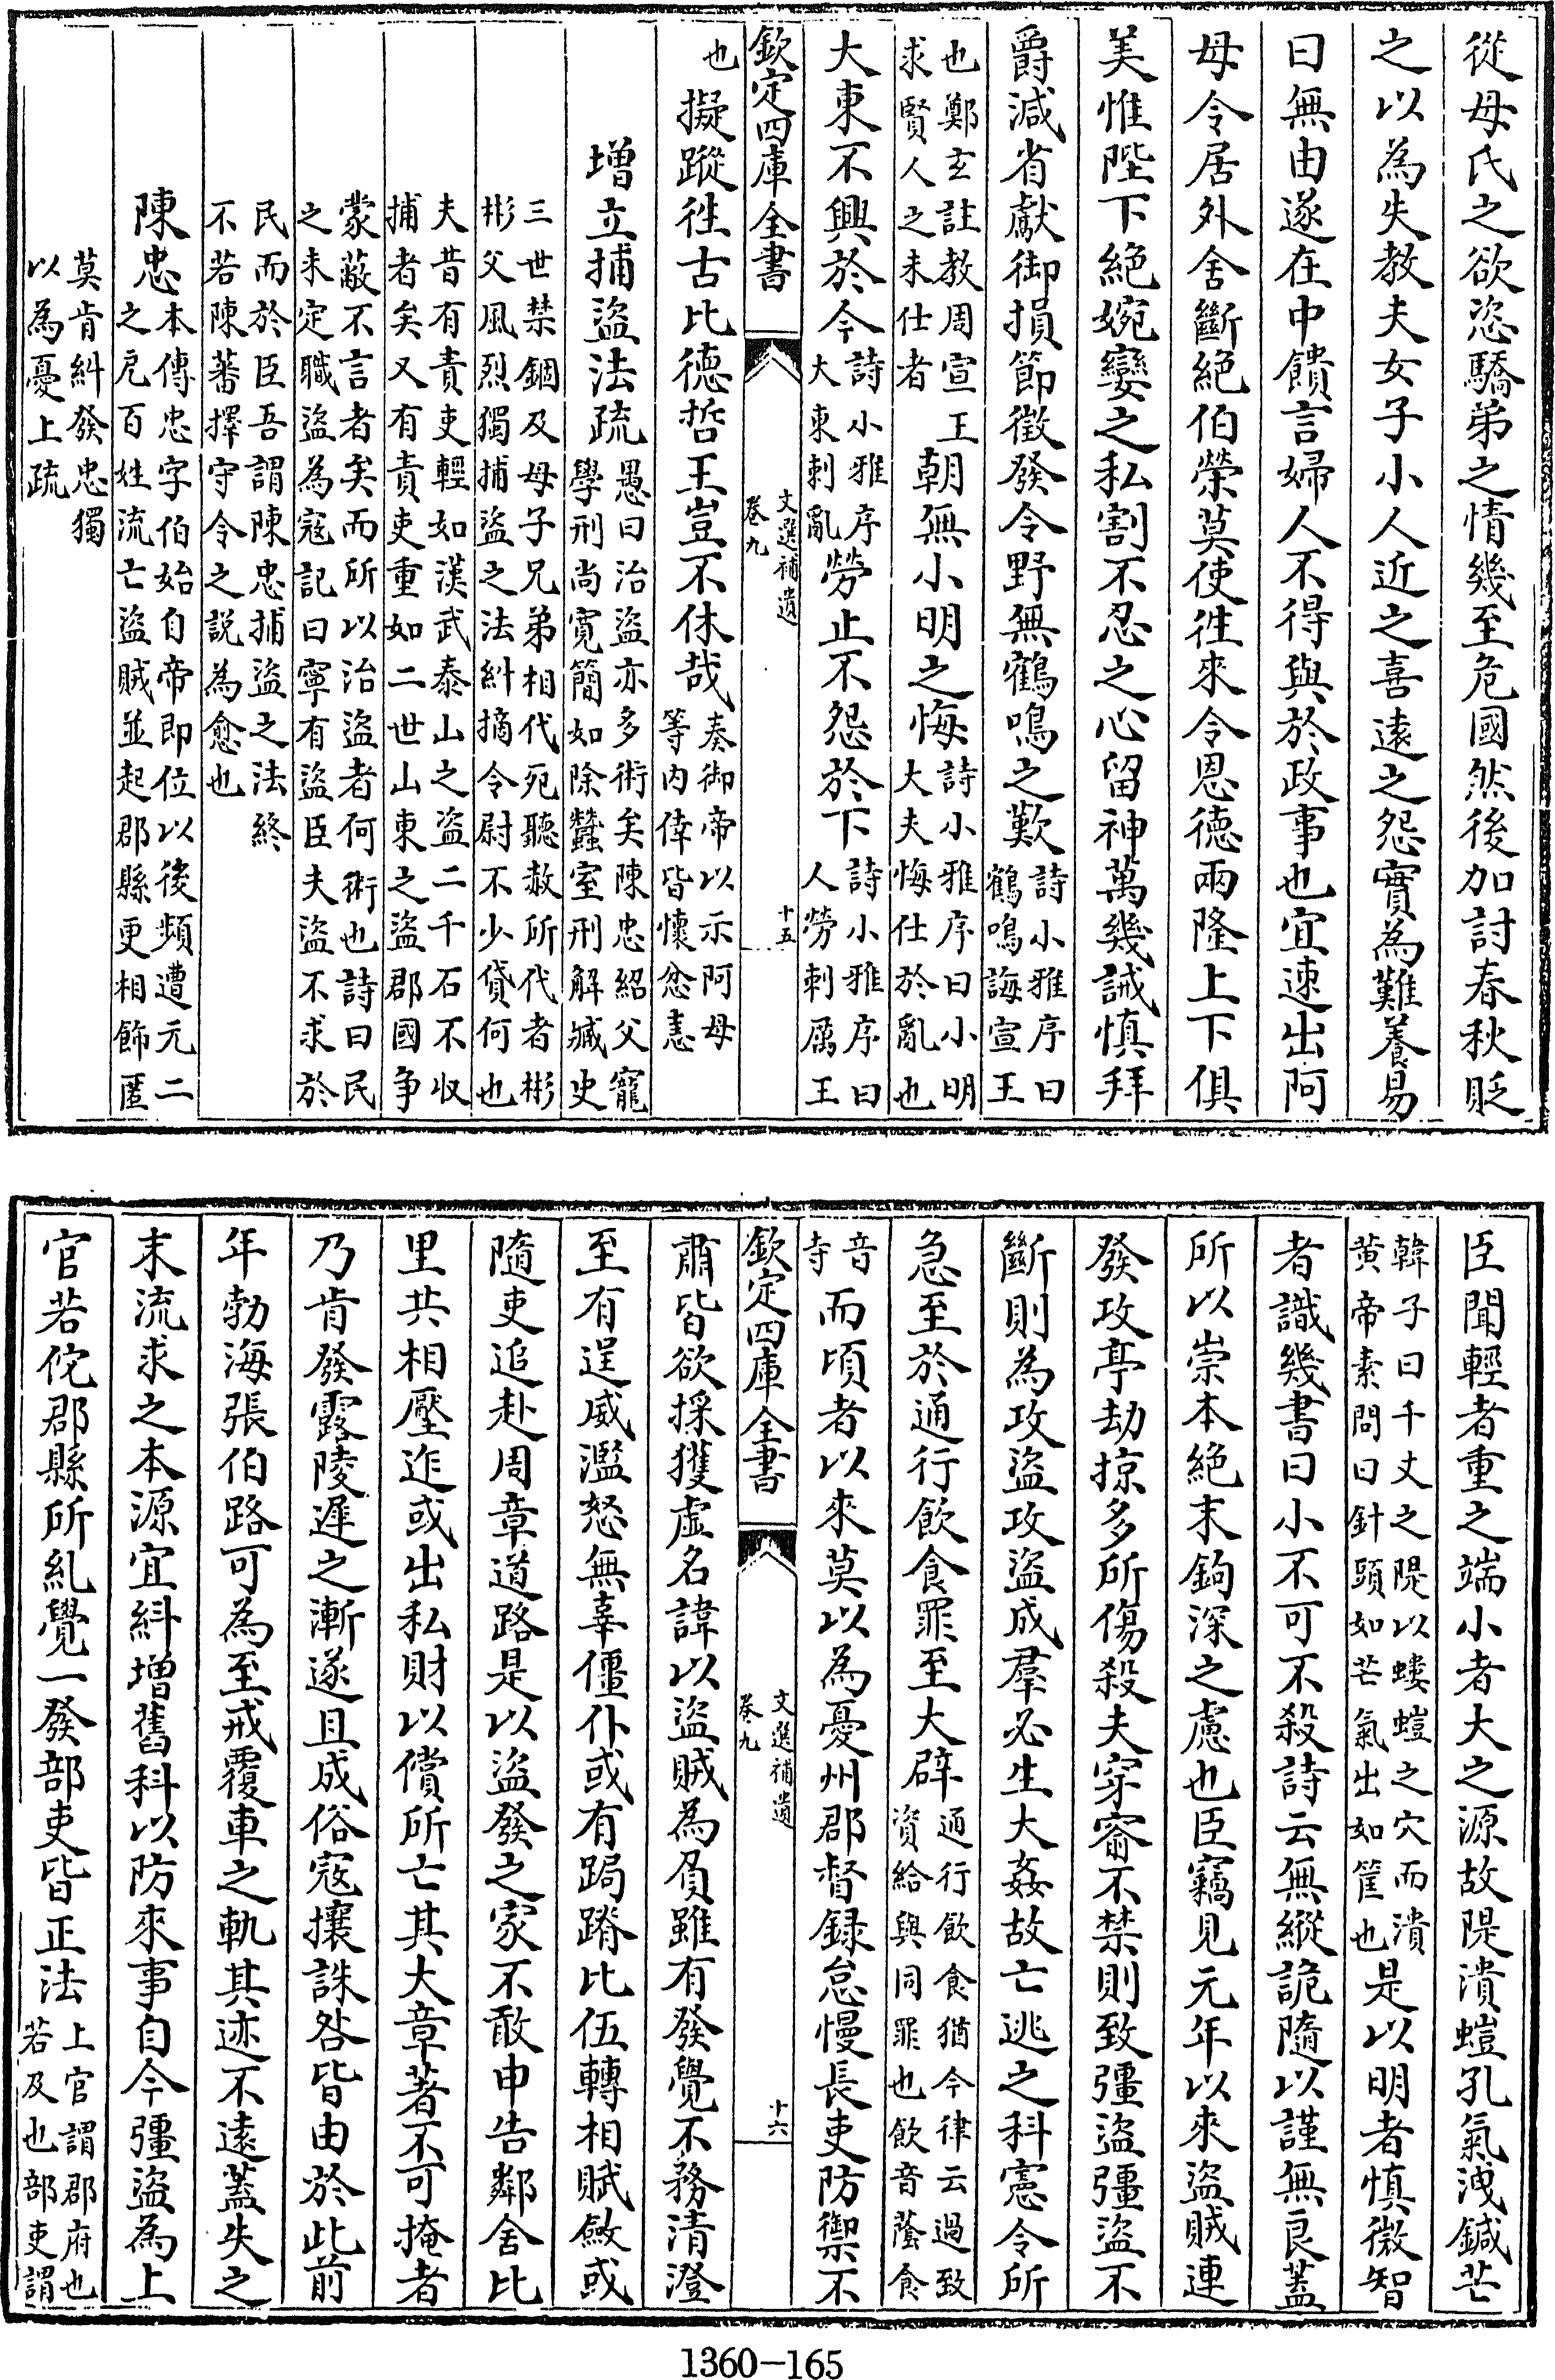 從母氏之欲恣驕弟之情幾至危國然後加討春秋貶
之以為失教夫女子小人近之喜遠之怨實為難養易
曰無由遂在中饋言婦人不得與於政事也宜速出阿
母令居外舍斷絕伯榮莫使徃來令恩德兩隆上下俱
美惟陛下絕婉孌之私割不忍之心留神萬幾誡慎拜
爵減省獻御損節徵發令野無鶴鳴之歎詩小雅序曰鶴鳴誨宣王
也鄭玄註教周宣王求賢人之未仕者朝無小明之悔詩小雅序曰小明大夫悔仕於亂也
大東不興於今詩小雅序大東刺亂勞止不怨於下詩小雅序曰人勞刺厲王
欽定四庫全書 文選補遺 卷九 十五
也擬蹤徃古比德哲王豈不休哉奏御帝以示阿母等内倖皆懷忿恚
增立捕盜法疏愚曰治盜亦多術矣陳忠紹父寵學刑尚寛簡如除蠶室刑解贓吏
三世禁錮及母子兄弟相代死聽赦所代者彬彬父風烈獨捕盜之法糾摘令尉不少貸何也
夫昔有責吏輕如漢武泰山之盜二千石不収捕者矣又有責吏重如二世山東之盜郡國争
蒙蔽不言者矣而所以治盜者何術也詩曰民之未定職盜為寇記曰寧有盜臣夫盜不求於
民而於臣吾謂陳忠捕盜之法終不若陳蕃擇守令之説為愈也
陳忠本傳忠字伯始自帝即位以後頻遭元二之戹百姓流亡盜賊並起郡縣更相飾匿
莫肯糾發忠獨以為憂上疏
臣聞輕者重之端小者大之源故隄潰螘孔氣洩鍼芒
韓子曰千丈之隄以螻螘之穴而潰黄帝素問曰針頭如芒氣出如筐也是以明者慎微智
者識幾書曰小不可不殺詩云無縱詭隨以謹無良蓋
所以崇本絕末鉤深之慮也臣竊見元年以來盜賊連
發攻亭劫掠多所傷殺夫穿窬不禁則致彊盜彊盜不
斷則為攻盜攻盜成羣必生大姦故亡逃之科憲令所
急至於通行飲食罪至大辟通行飲食猶今律云過致資給與同罪也飲音蔭食
音寺而頃者以來莫以為憂州郡督録怠慢長吏防禦不
欽定四庫全書 文選補遺 卷九 十六
肅皆欲採獲虛名諱以盜賊為負雖有發覺不務清澄
至有逞威濫怒無辜僵仆或有跼蹐比伍轉相賦斂或
隨吏追赴周章道路是以盜發之家不敢申告鄰舍比
里共相壓迮或出私財以償所亡其大章著不可掩者
乃肯發露陵遲之漸遂且成俗寇攘誅咎皆由於此前
年勃海張伯路可為至戒覆車之軌其迹不遠蓋失之
末流求之本源宜糾增舊科以防來事自今彊盜為上
官若佗郡縣所糺覺一發部吏皆正法上官謂郡府也若及也部吏謂
1360-165